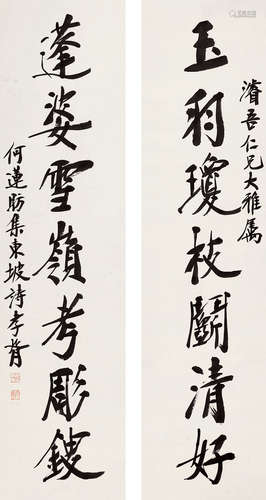 濬吾仁兄大雅属
玉羽瓊枝鬪清好
蓬婆雪嶺考彫鎪
何蓮舫集東坡詩孝胥